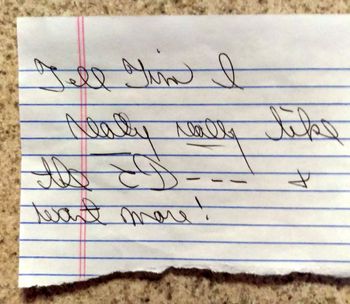 Tell Tim I
really really like
the CD --- &
want more!